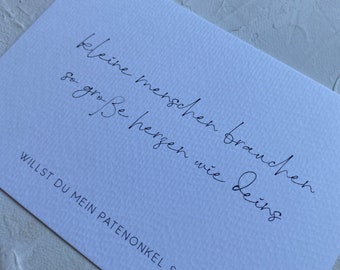 kleine menschen brauchen
so große herzen wie deins
WILLST DU MEIN PATENONKEL S